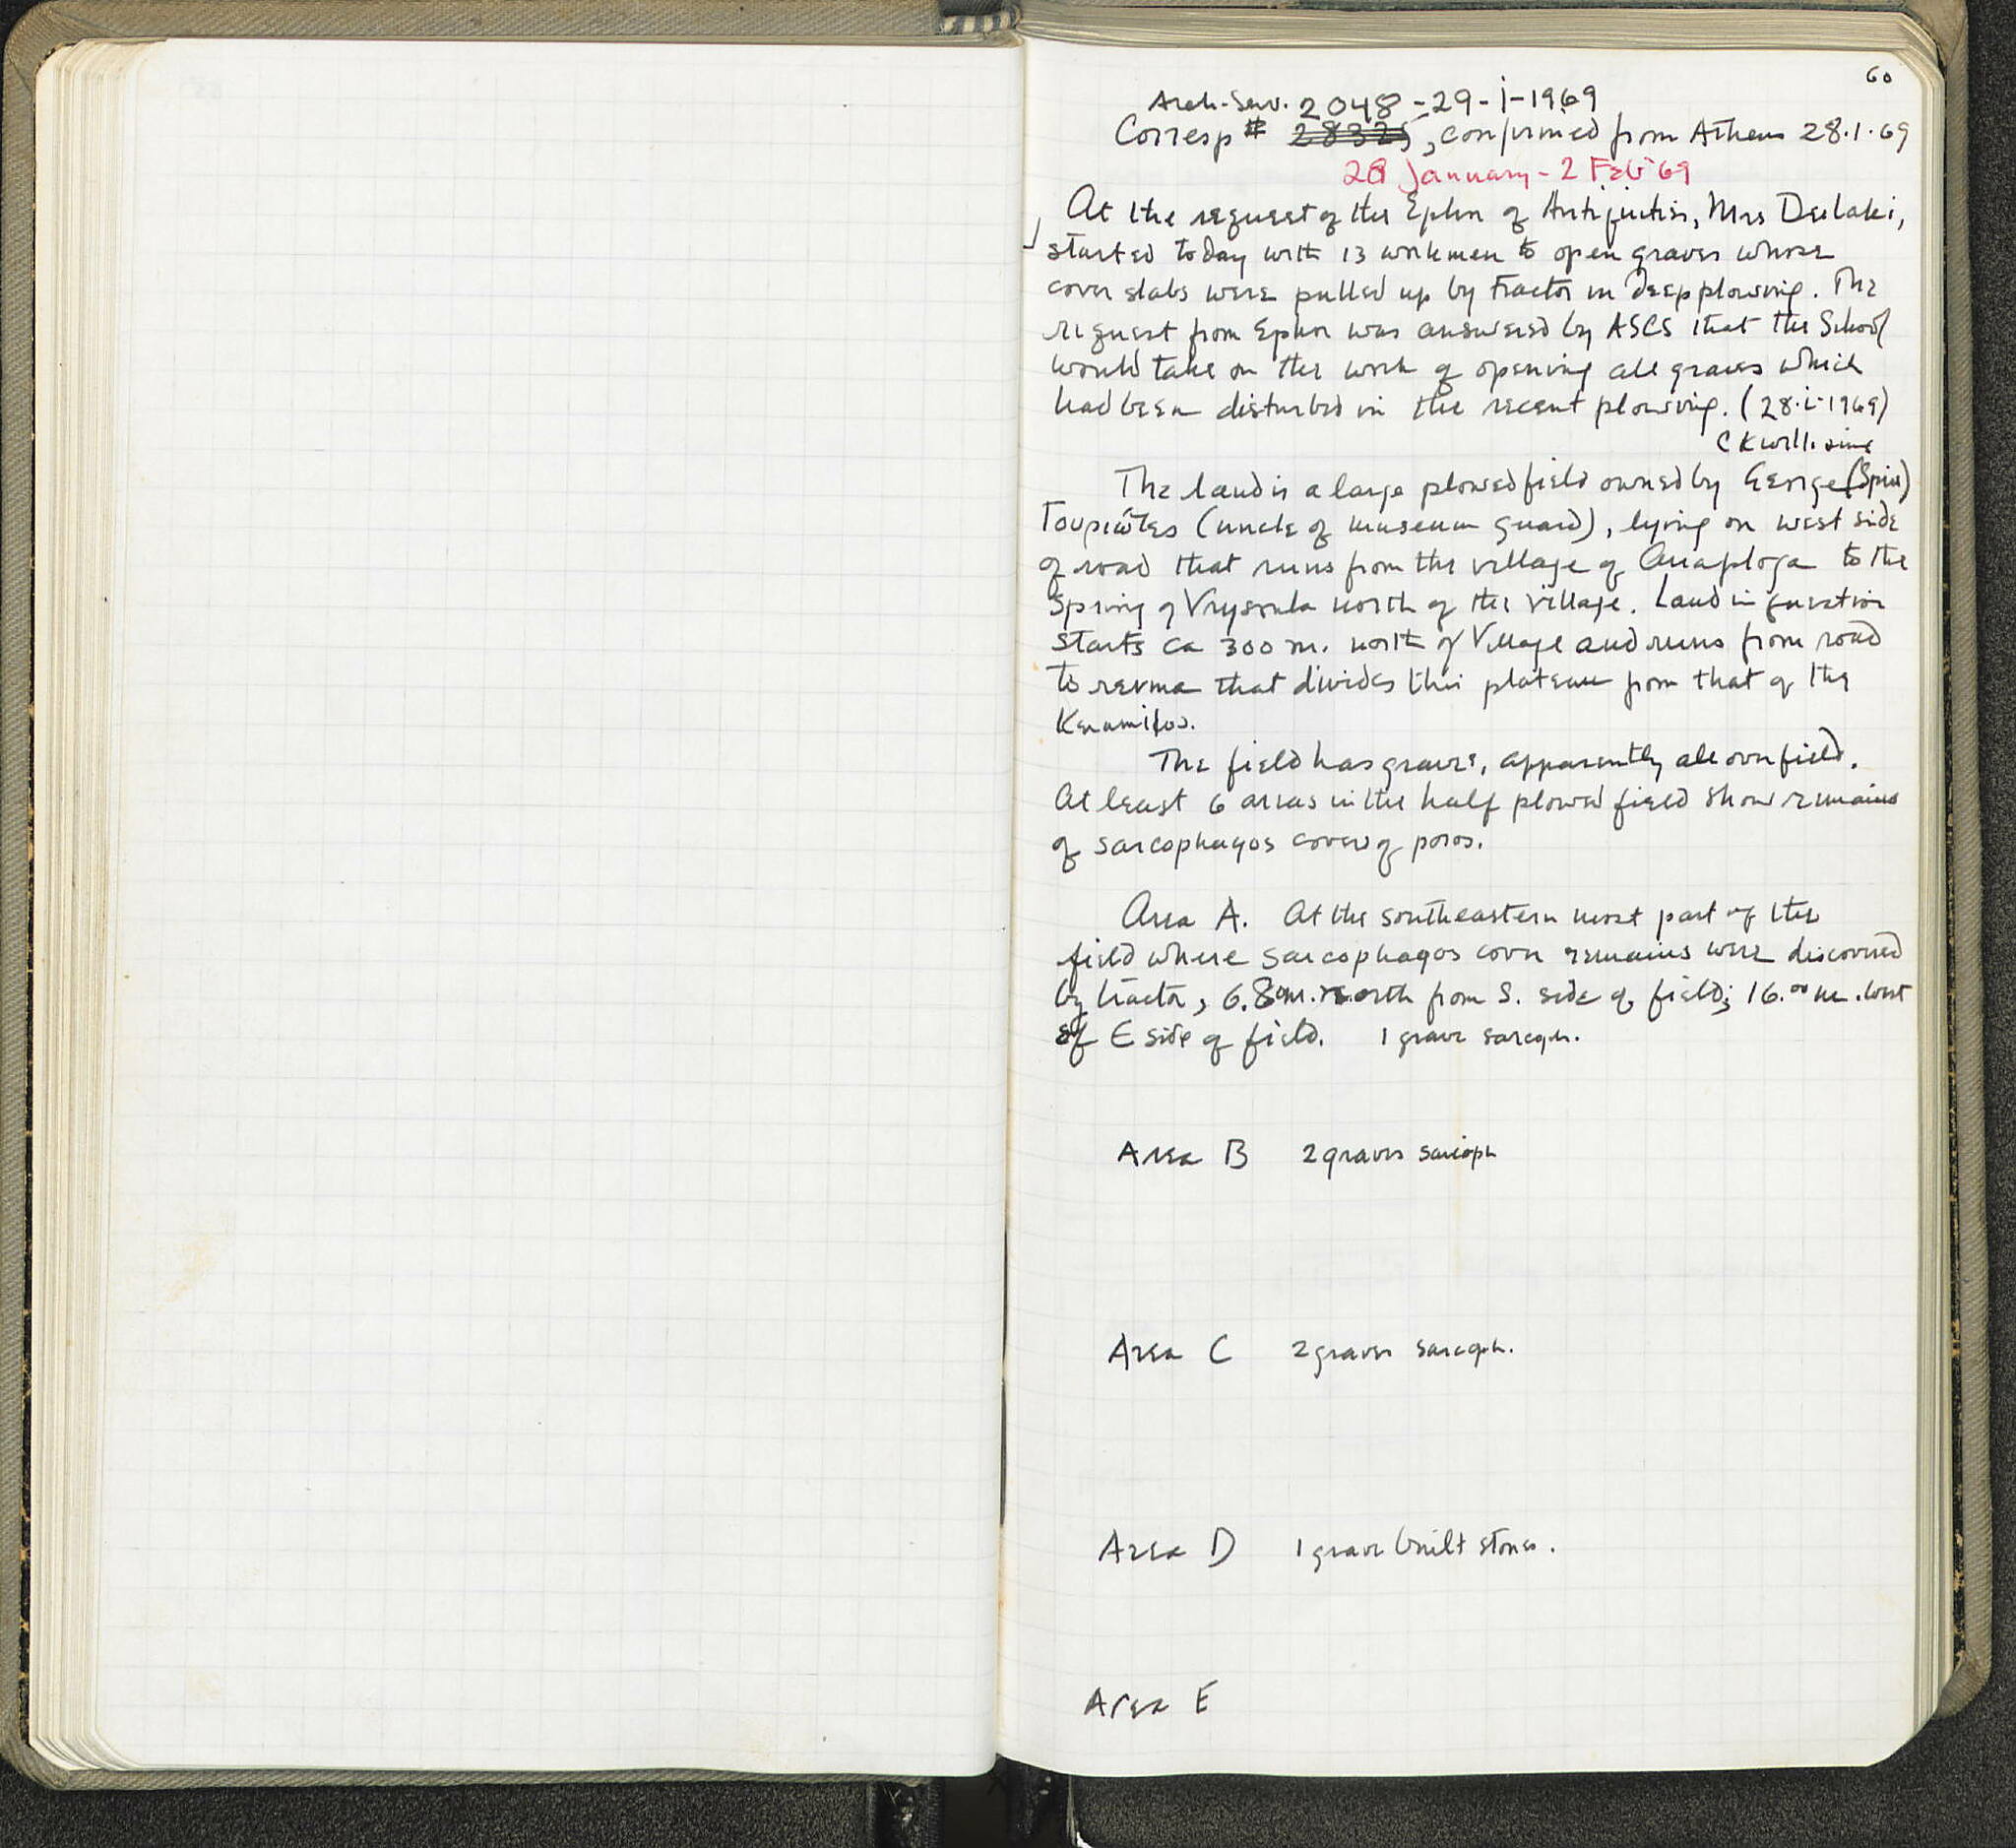 60
Arch. Serv. 2048 - 29 - i - 1969
Corresp # 28325, confirmed from Athens 28.1.69
28 January - 2 Feb '69
At the request of the Ephor of Antiquities, Mrs Deilaki,
started today with 13 workmen to open graves whose
cover slabs were pulled up by tractor in deep plowing. The
request from Ephor was answered by ASCS that the School
would take on the work of opening all graves which
had been disturbed in the recent plowing. (28.i.1969)
C K Williams
The land is a large plowed field owned by George (Spir)
Tsupiotes (uncle of museum guard), lying on west side
of road that runs from the village of Anaploga to the
Spring of Vrysoula north of the village. Land in question
starts ca 300 m. north of village and runs from road
to revma that divides this plateau from that of the
Keramikos.
The field has graves, apparently all over field.
At least 6 areas in the half plowed field show remains
of sarcophagos covers of poros.
Area A. At the southeastern most part of the
field where sarcophagos cover remains were discovered
by tractor, 6.80 m. north from S. side of field; 16.00 m. west
of E side of field. 1 grave sarcoph.
Area B 2 graves sarcoph
Area C 2 graves sarcoph.
Area D 1 grave built stones.
Area E